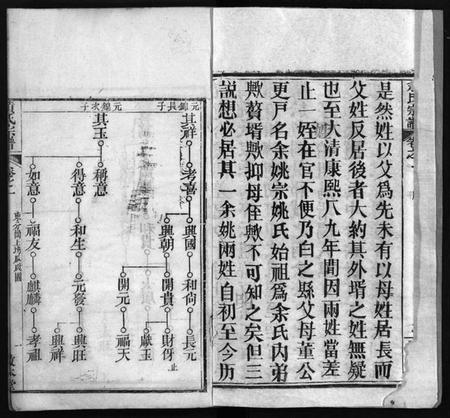 余氏宗譜
是然姓以父爲先未有以母姓居長而
父姓反居後者大約其外壻之姓無疑
也至大清康熙八九年間因兩姓當差
止一姪在官不便乃白之縣父母董公
更戸名余姚宗姚氏始祖爲余氏內弟
歟贅壻歟抑母侄歟不可知之矣但三
説想必居其一余姚兩姓自初至今历
元錦長子
其祥 考喜 興國 和尙 長元
興朝 開貴 財伢 止
歐玉
開元 福天
元錦次子
其玉 稱意
得意 和生 元發 興旺
興祥
如意 福友 麒麟 孝祖
氏宗譜
卷之一